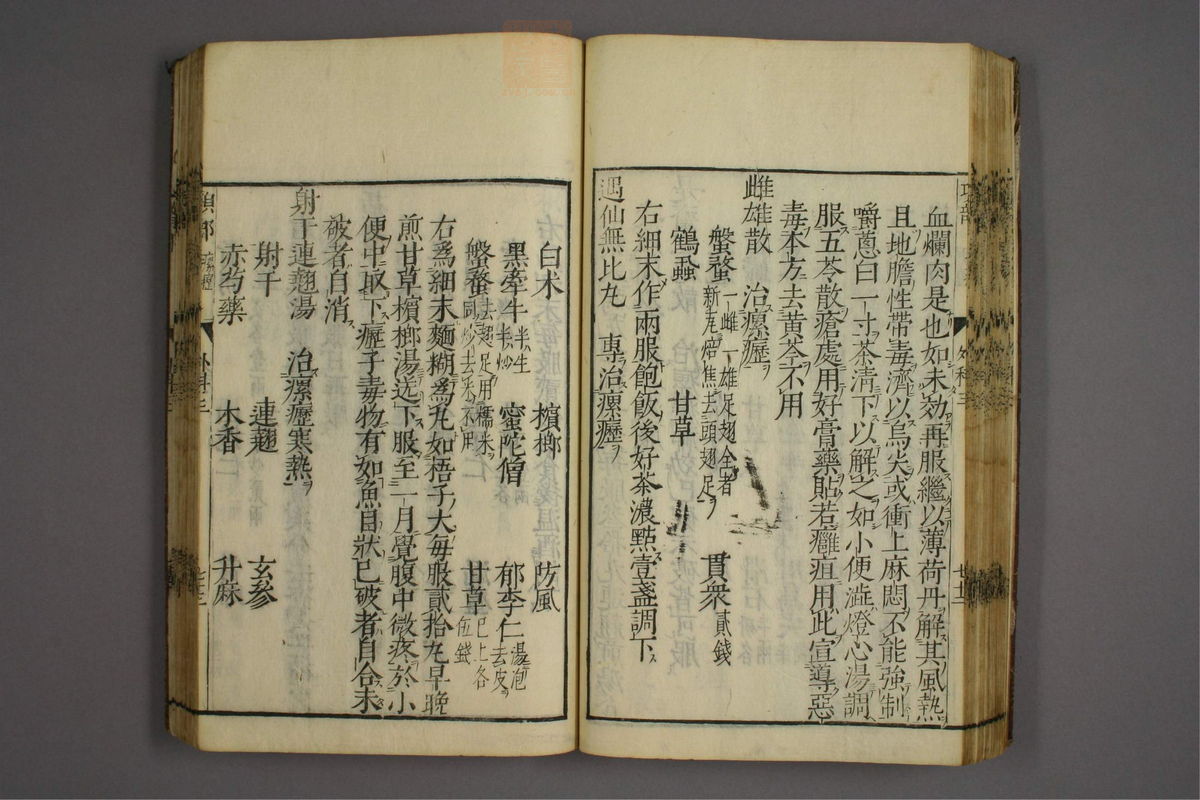 血爛肉是也如未効再服繼以薄荷丹解其風熱
且地膽性帶毒濟以烏尖或衝上麻悶不能強制
嚼蔥白一寸茶清下以解之如小便澁燈心湯調
服五苓散瘡處用好膏藥貼若癰疽用此宣導惡
毒本方去黃芩不用
雌雄散 治瘰癧
盤蝥 一雌一雄足翅全者新瓦焙焦去頭翅足 貫衆 貳錢
鶴蝨 甘草
右細末作兩服飽飯後好茶濃點壹盞調下
遇仙無比丸 專治瘰癧
白朮 檳榔 防風
黑牽牛 半生半炒 蜜陀僧 郁李仁 湯泡去皮
盤蝥 去翅足用糯米同炒去米不用 甘草 已上各伍錢
右爲細末麵糊爲丸如梧子大每服貳拾丸早晚
煎甘草檳榔湯送下服至一月覺腹中微疼於小
便中取下癧子毒物有如魚目狀已破者自合未
破者自消
射干連翹湯 治瘰癧寒熱
射干 連翹 玄參
赤芍藥 木香 升麻
項部 瘰癧 外科三